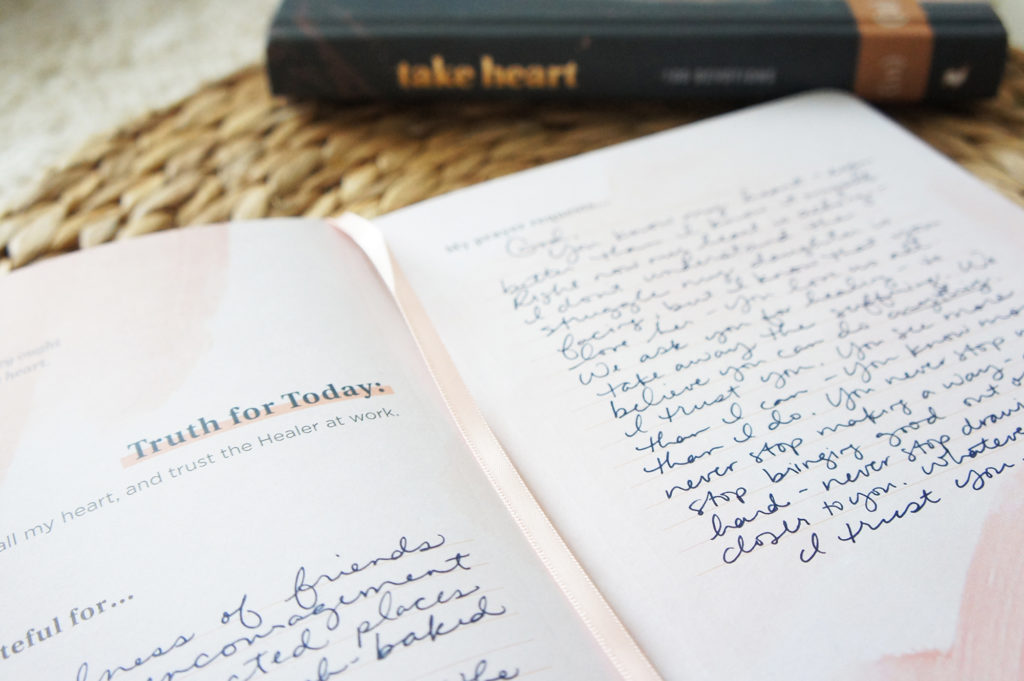 take heart
100 DEVOTIONS
ry ought
heart.
Truth for Today:
all my heart, and trust the Healer at work.
teful for...
lness of friends
encouragement
cted places
h-baked
the
My prayer requests...
God,
You know my heart - even
better than I know it myself.
Right now my heart is aching -
I don't understand the
struggle my daughter is
facing but I know that you
love her - You love us all
We ask you for healing - to
take away the suffering. We
believe you can do anything
I trust you. You see more
than I can - You know more
than I do. You never stop
never stop making a way -
stop bringing good out
hard - never stop drawing
closer to you. Whatever
I trust You.